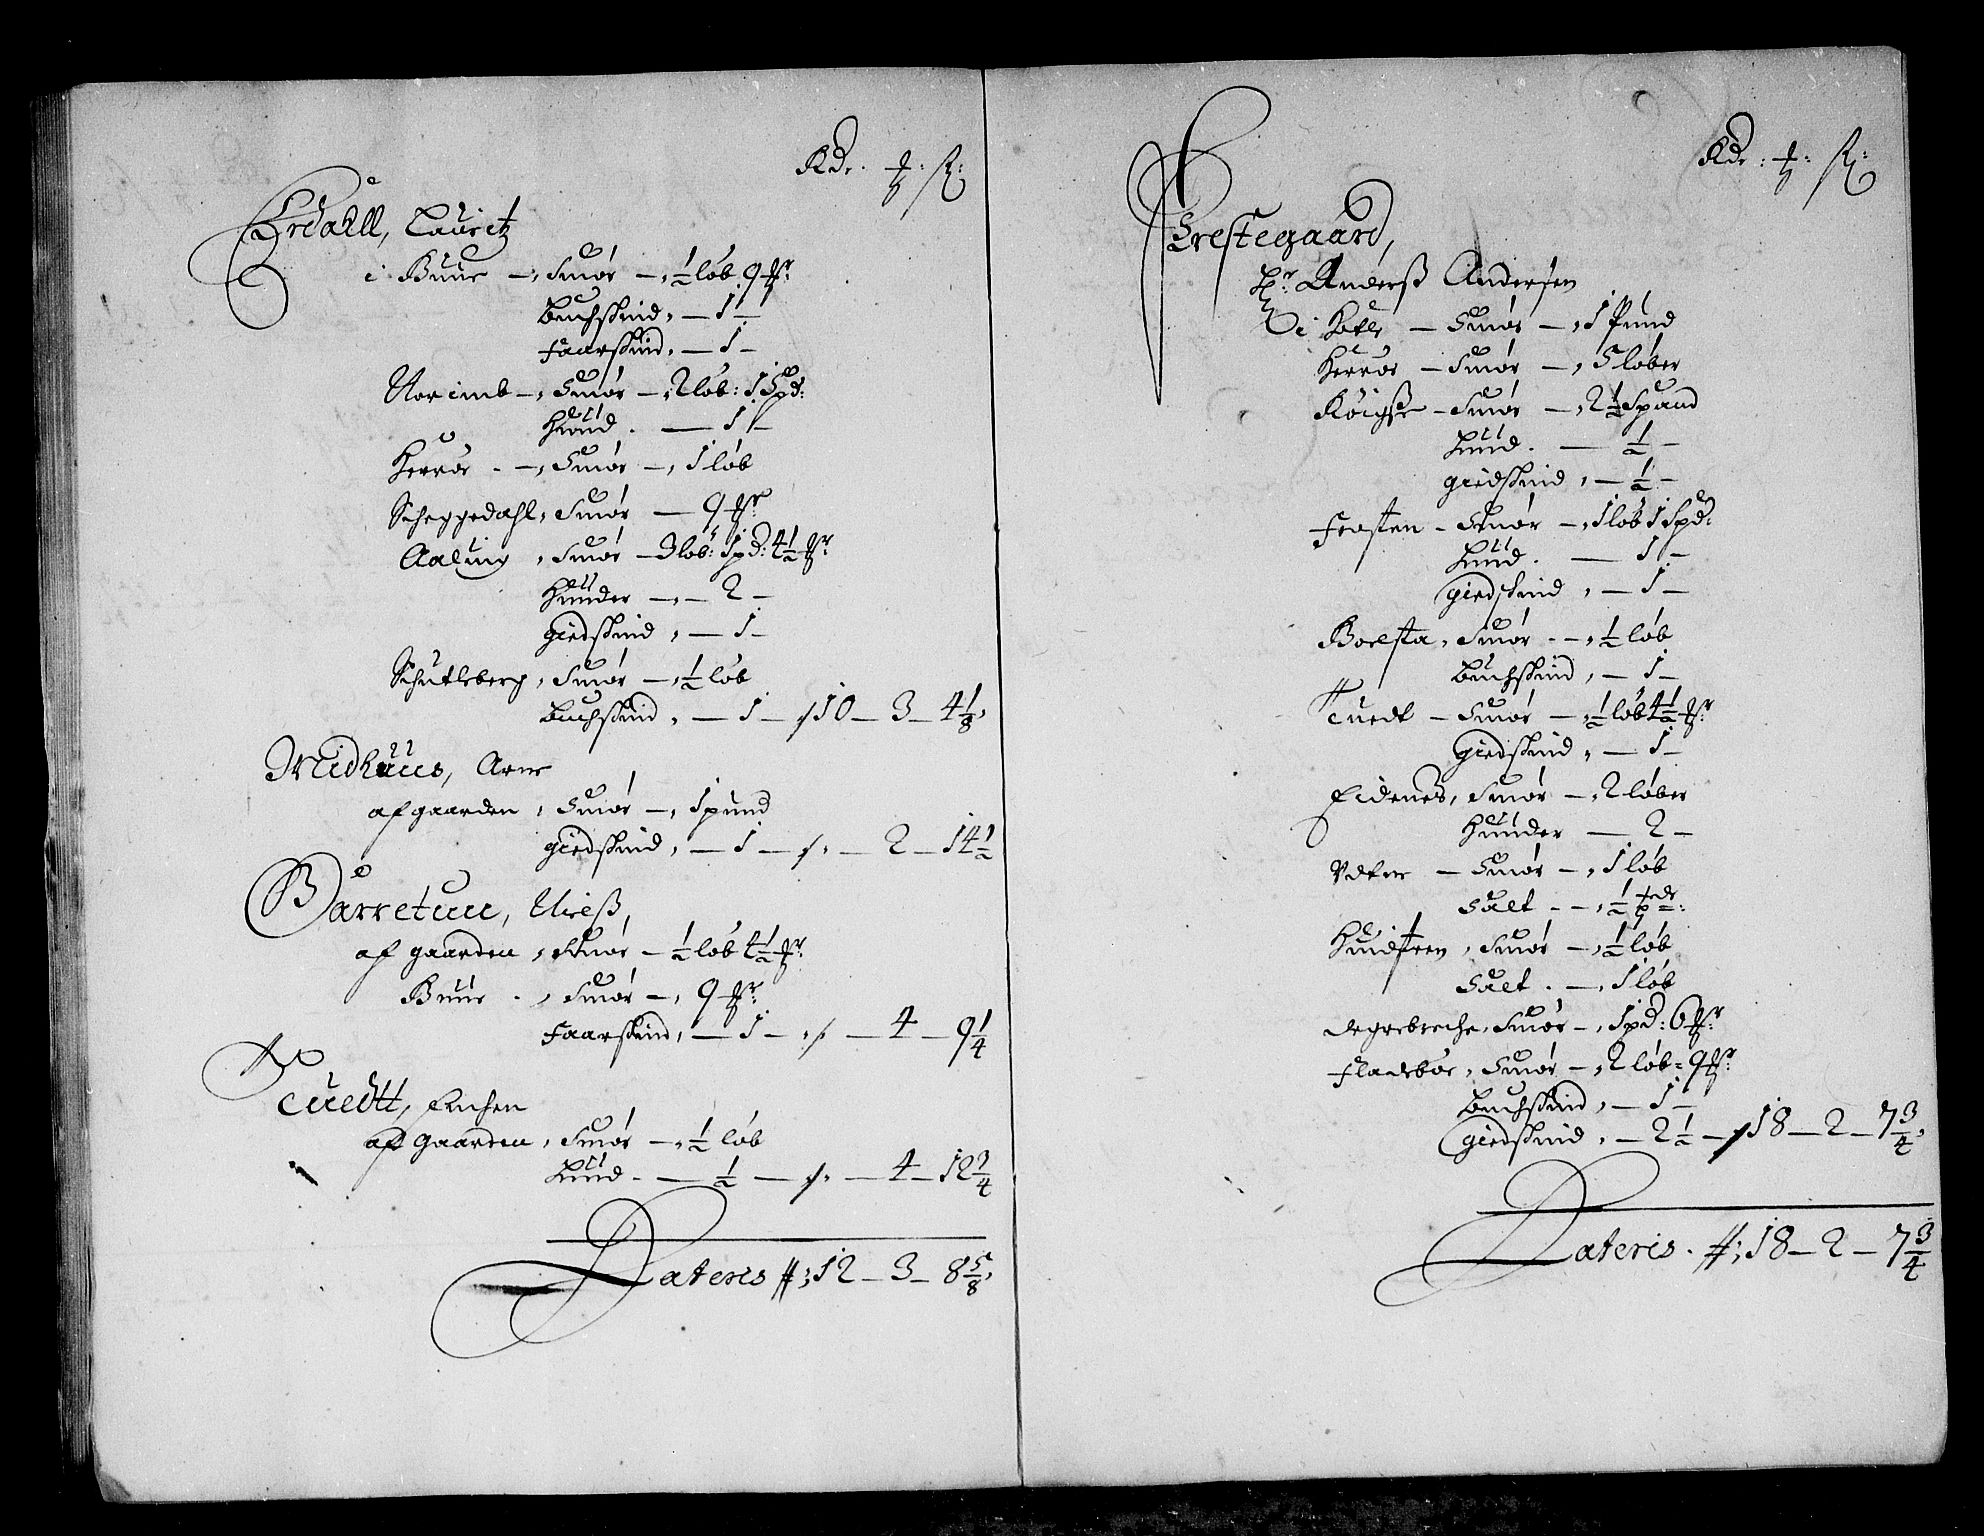 Rdr. ꝉ. ß:
Erdahll, Lauritz
i Buue - Smør - ½ løb 9 ꝉr:
Buchskind, - 1 -
Faarskind, - 1 -
Norimb - Smør - 2 løb: 1 Spd:
Huud. - 1 -
Herrøe - Smør - 1 løb
Scheggedahl, Smør - 9 ꝉr:
Aalung, Smør - 3 løb: 1 Spd: 4½ ꝉr
Huuder - 2 -
giedskind, - 1 -
Schutleberg, Smør - ½ løb
Buchskind, - 1 - / 10 - 3 - 4⅛,
Midhuus, Arne
af gaarden, Smør - 1 pund
giedskind, - 1 - / - 2 - 14½
Barretuu, Nireß,
af gaarden, Smør - ½ løb 4½ ꝉr
Buue - Smør - 9 ꝉr:
Faarskind, - 1 - / - 4 - 9¼
Tuedtt, Enchen
af gaarden, Smør - ½ løb
Huud - ½ - / - 4 - 12¾
Lateris #: 12 - 3 - 8⅝,
Rdr: ꝉ: ß:
Prestegaard,
Hr: Anderß Andersen
i Hole - Smør - 1 Pund
Herrøe - Smør - 5 løber
Røigße - Smør - 2½ Spand
Huud. - ½ -
giedskind, - ½ -
Frosten - Smør - 1 løb 1 Spd:
Huud. - 1 -
giedskind, - 1 -
Boelsta, Smør - ½ løb
Buchskind, - 1 -
Tuedt - Smør - ½ løb 4½ ꝉr
giedskind, - 1 -
Eidenes, Smør - 2 løber
Huuder - 2 -
Vdtne - Smør - 1 løb
Salt - ½ tde:
Hundtren, Smør - ½ løb
Salt. - 1 løb
Degrebreche, Smør - 1 Spd: 6 ꝉr:
Fladebøe, Smør - 2 løb - 9 ꝉr:
Buchskind, - 1 -
giedskind, - 2½ - / 18 - 2 - 7¾,
Lateris. #: 18 - 2 - 7¾